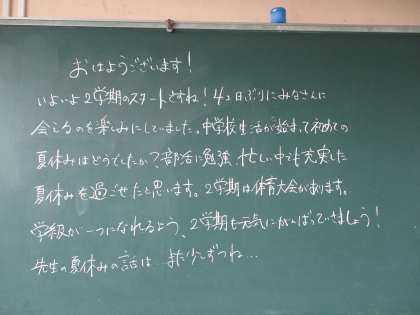 おはようございます!
いよいよ2学期のスタートですね!42日ぶりにみなさんに
会えるのを楽しみにしていました。中学校生活が始まって初めての
夏休みはどうでしたか?部活に勉強 忙しい中でも充実した
夏休みを過ごせたと思います。2学期は体育大会があります。
学級が一つになれるよう、2学期も元気にがんばっていきましょう!
先生の夏休みの話は…また少しずつね…